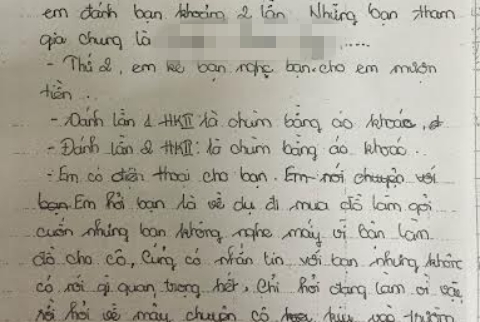 em đánh bạn khoảng 2 lần. Những bạn tham
gia chung là .....
- Thứ 2, em kê bạn nghe bạn cho em mượn
tiền ..
- Đánh lần 1 HKII là chùm bằng áo khoác.
- Đánh lần 2 HKII: là chùm bằng áo khoác.
- Em có điện thoại cho bạn. Em nói chuyện với
bạn. Em hỏi bạn là về dụ đi mua đồ làm gỏi
cuốn nhưng bạn không nghe máy vì bận làm
đồ cho cô, Cũng có nhắn tin với bạn nhưng không
có nói gì quan trọng hết, Chỉ hỏi đang làm gì vậy
rồi hỏi về mấy chuyện có vào trường